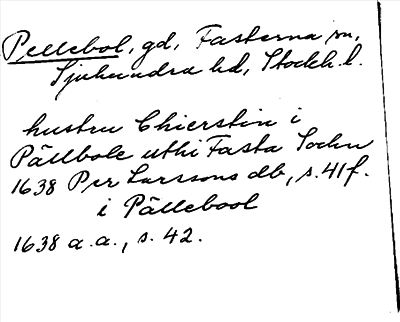 Pellebol, gd, Fasterna sn,
Sjuhundra hd, Stockh. l.
hustru Chierstin i
Pällbole uthi Fasta Sochn
1638 Per Larssons db, s. 41 f.
i Pällebool
1638 a. a., s. 42.